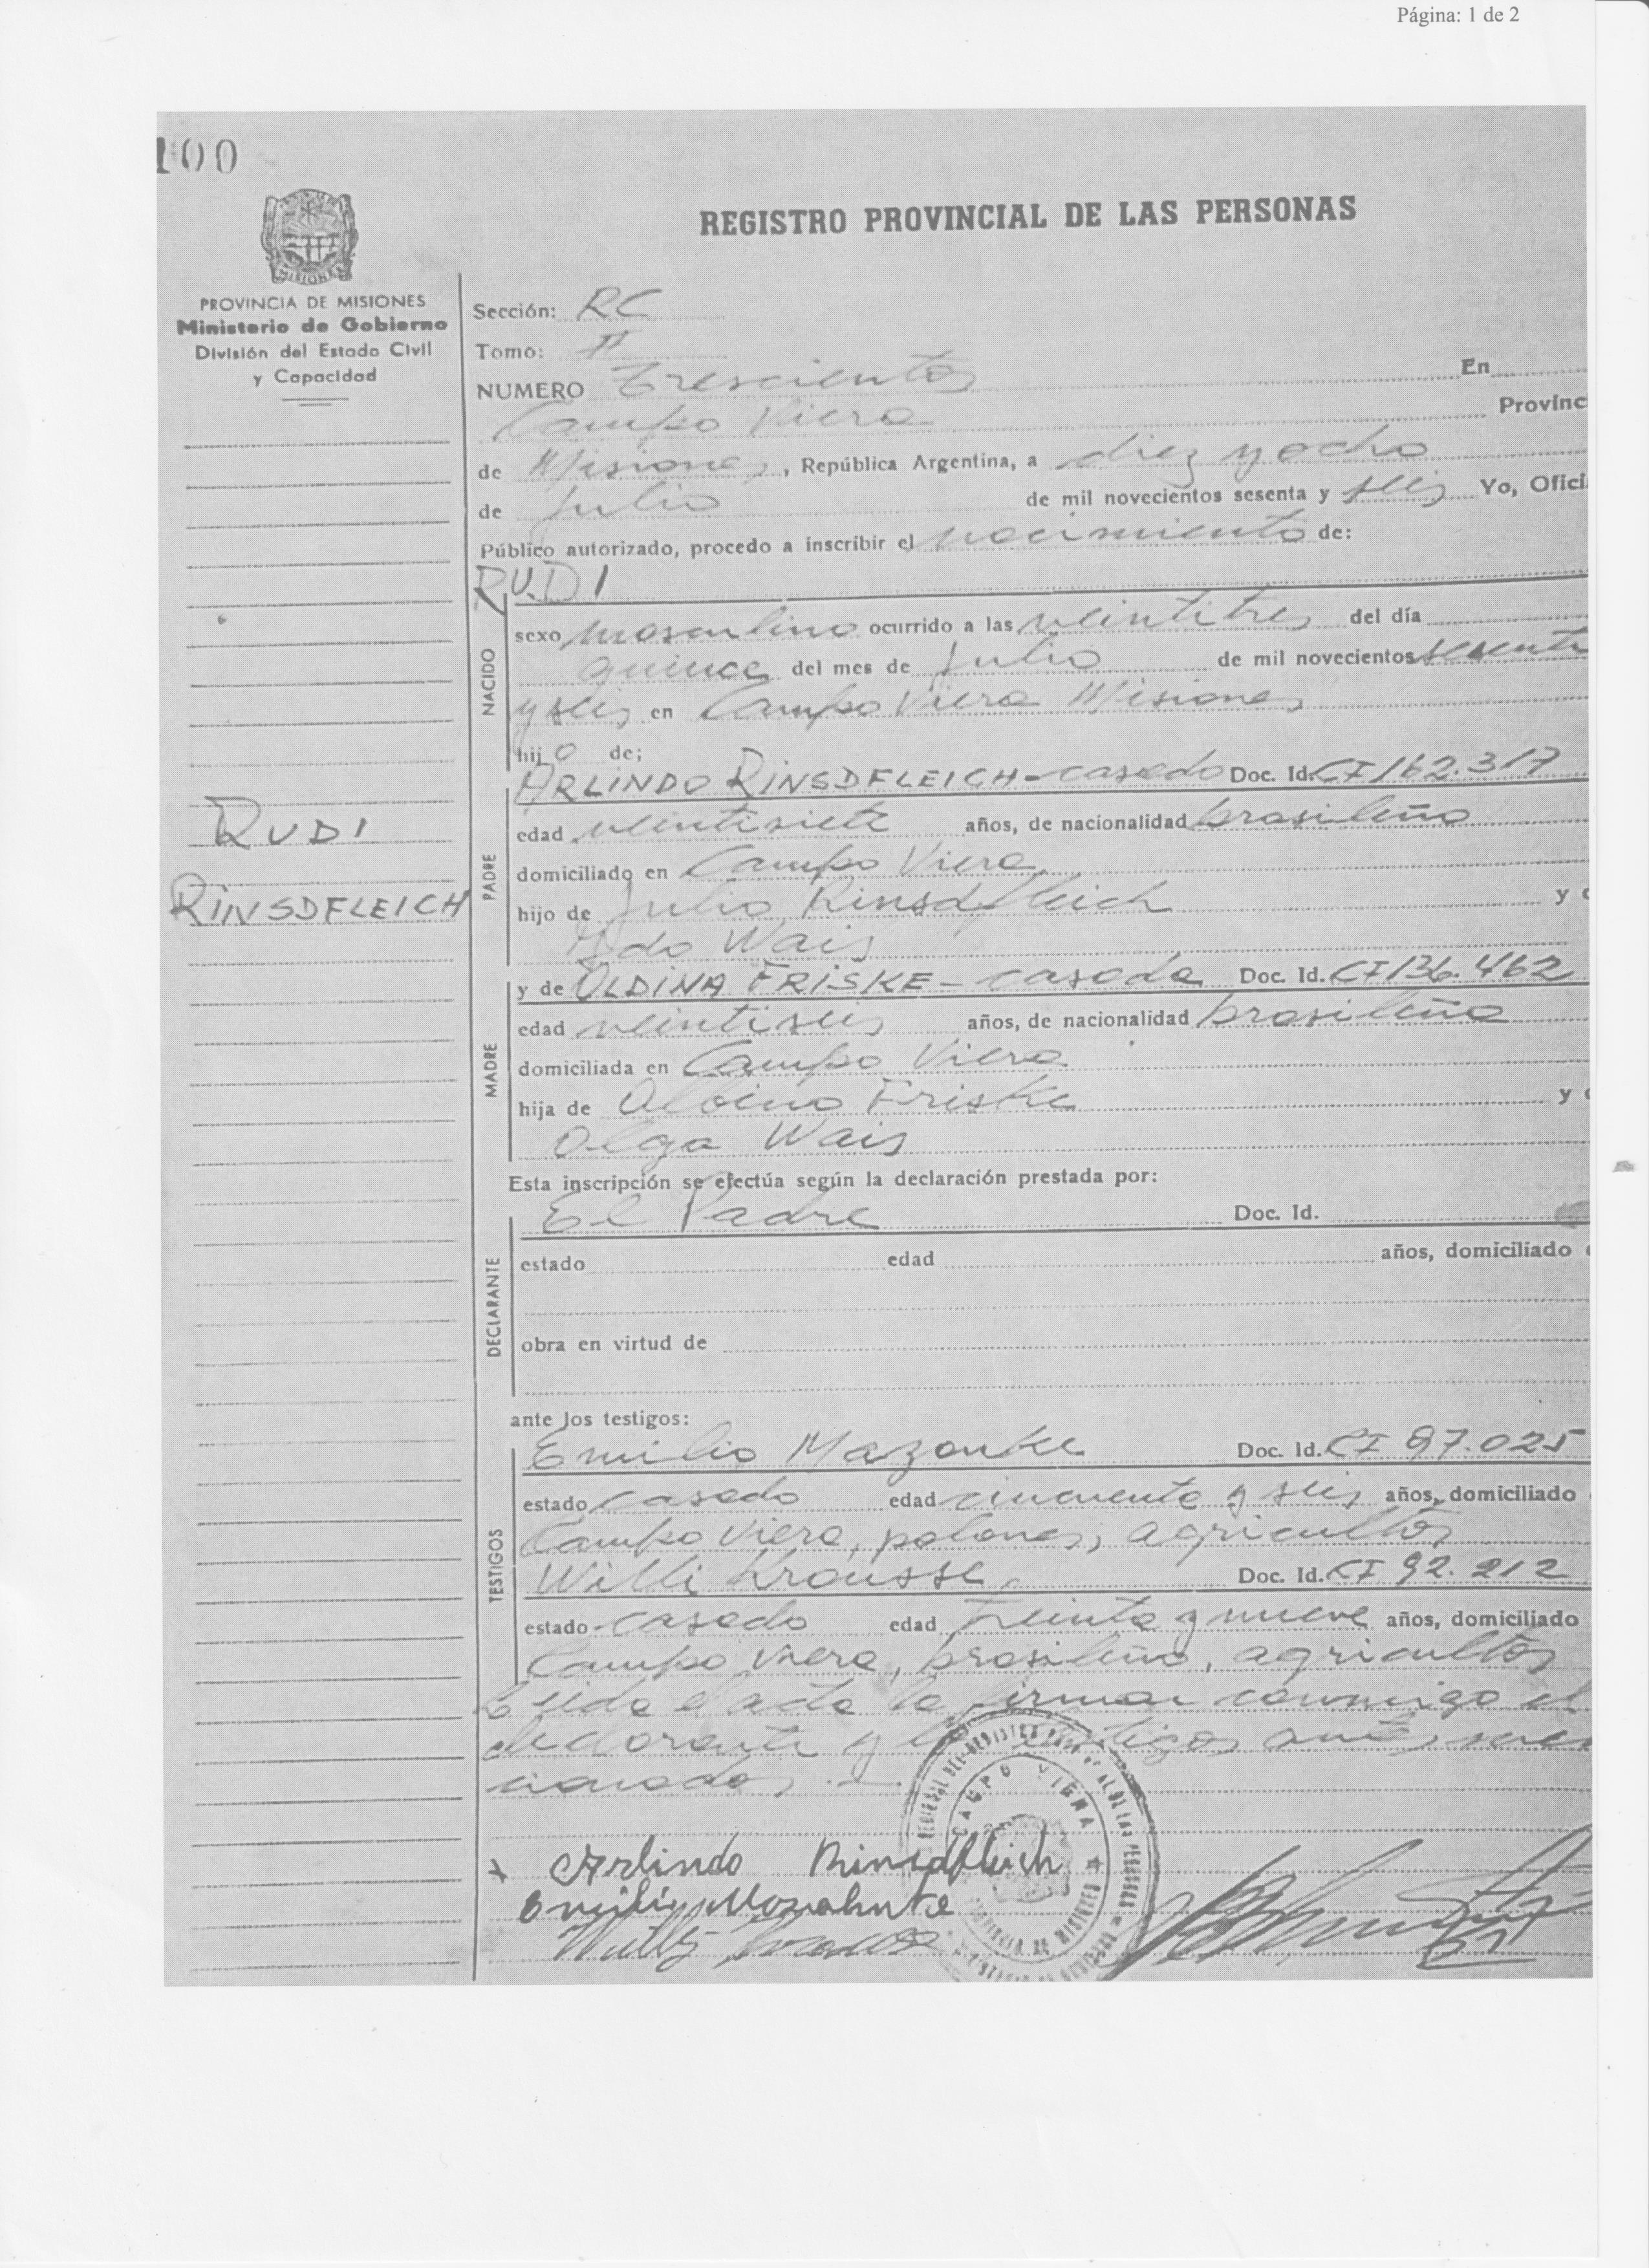 Página: 1 de 2
100
REGISTRO PROVINCIAL DE LAS PERSONAS
PROVINCIA DE MISIONES
Ministerio de Gobierno
División del Estado Civil
y Capacidad
RUDI
RINSDFLEICH
Sección: RC
Tomo: II
NUMERO Trescientos En
Campo Viera Provinc
de Misiones, República Argentina, a diez y ocho
de Julio de mil novecientos sesenta y seis Yo, Ofici
Público autorizado, procedo a inscribir el nacimiento de:
RUDI
NACIDO
sexo masculino ocurrido a las veintitres del día
quince del mes de Julio de mil novecientos sesenta
y seis en Campo Viera Misiones
hijo de;
PADRE
ARLINDO RINSDFLEICH - casado Doc. Id. CI 162.317
edad veintisiete años, de nacionalidad brasileña
domiciliado en Campo Viera
hijo de Julio Rinsdfleich y
Wais
MADRE
y de OLDINA FRISKE - casada Doc. Id. CI 136.462
edad veintiseis años, de nacionalidad brasileña
domiciliada en Campo Viera
hija de Friske y
Olga Wais
Esta inscripción se efectúa según la declaración prestada por:
DECLARANTE
El Padre Doc. Id.
estado edad años, domiciliado
obra en virtud de
ante los testigos:
TESTIGOS
Emilio Mazanke Doc. Id. CI 97.025
estado casado edad cincuenta y seis años, domiciliado
Campo Viera, polones, agricultor
Willi Krausse Doc. Id. CI 92.212
estado casado edad treinta y nueve años, domiciliado
Campo Viera, brasileño, agricultor
Leida el acta la firman conmigo el
declarante y los testigos antes men
cionados.
CAMPO VIERA
PROVINCIA DE MISIONES
Arlindo Rinsdfleich
Emilio
Willy